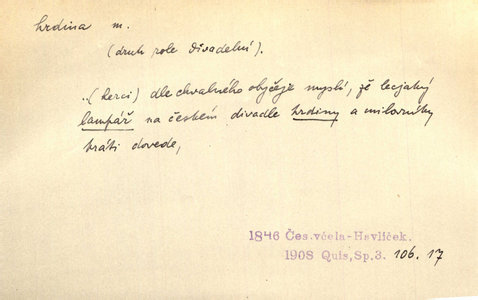 hrdina m.
(druh role divadelní).
..(herci) dle chvalného obyčeje myslí, že lecjaký
lampář na českém divadle hrdiny a milovníky
hráti dovede,
1846 Čes.včela-Havlíček.
1908 Quis,Sp.3. 106.17